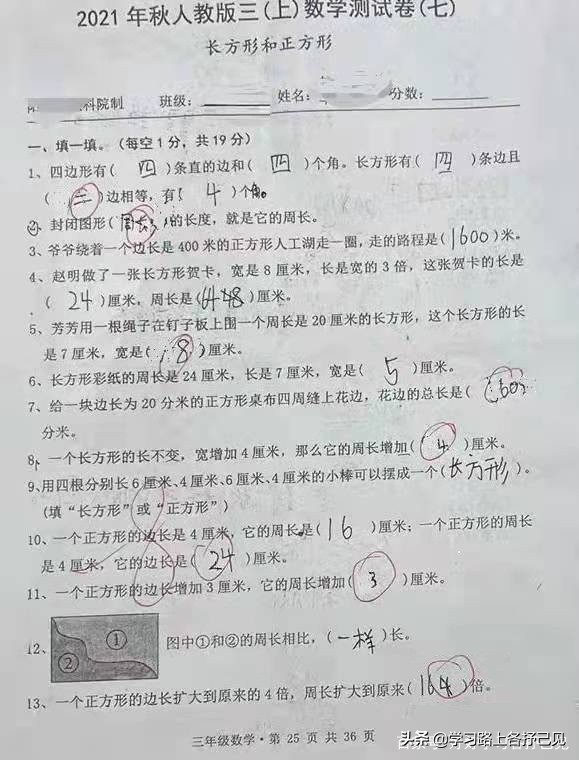 2021年秋人教版三(上)数学测试卷(七)
长方形和正方形
科院制 班级: 姓名: 分数:
一、填一填。(每空1分，共19分)
1、四边形有( 四 )条直的边和( 四 )个角。长方形有( 四 )条边且
( )边相等，有( 4 )个角。
2、封闭图形( )的长度，就是它的周长。
3、爷爷绕着一个边长是400米的正方形人工湖走一圈,走的路程是(1600)米。
4、赵明做了一张长方形贺卡，宽是8厘米，长是宽的3倍，这张贺卡的长是
( 24 )厘米，周长是( )厘米。
5、芳芳用一根绳子在钉子板上围一个周长是20厘米的长方形，这个长方形的长
是7厘米，宽是( 8 )厘米。
6、长方形彩纸的周长是24厘米，长是7厘米，宽是( 5 )厘米。
7、给一块边长为20分米的正方形桌布四周缝上花边，花边的总长是( )
分米。
8、一个长方形的长不变，宽增加4厘米，那么它的周长增加( 4 )厘米。
9、用四根分别长6厘米、4厘米、6厘米、4厘米的小棒可以摆成一个(长方形)。
(填“长方形”或“正方形”)
10、一个正方形的边长是4厘米，它的周长是(16 )厘米；一个正方形的周长
是4厘米，它的边长是( 24 )厘米。
11、一个正方形的边长增加3厘米，它的周长增加( 3 )厘米。
12、① ② 图中①和②的周长相比，(一样)长。
13、一个正方形的边长扩大到原来的4倍，周长扩大到原来( )倍。
三年级数学·第 25 页 共 36 页
头条 @学习路上各抒己见